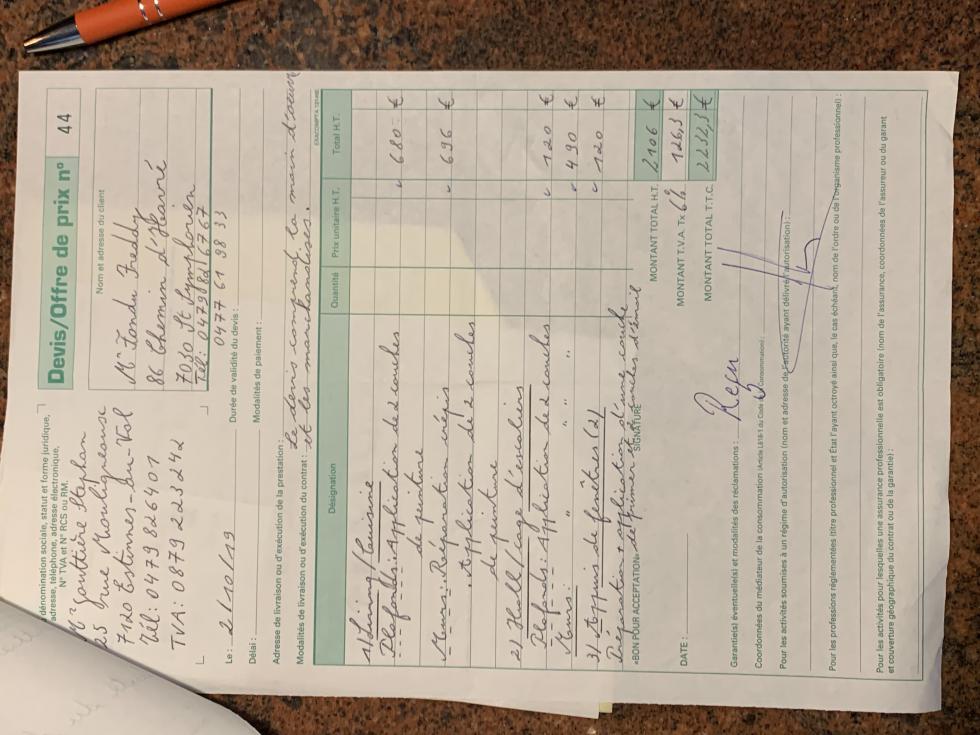 Devis/Offre de prix nº 44
dénomination sociale, statut et forme juridique,
adresse, téléphone, adresse électronique,
N° TVA et N° RCS ou RM.
Stephan
7120 Estinnes-au-Val
Tél: 0479826401
TVA: 0879 223 242
Nom et adresse du client
Mr Fondu Freddy
86 Chemin d'Havré
7030 St Symphorien
0477 61 98 33
Le : 21/10/19
Durée de validité du devis :
Délai :
Modalités de paiement :
Adresse de livraison ou d'exécution de la prestation :
Modalités de livraison ou d'exécution du contrat :
Le devis comprend la main d'oeuvre
et les marchandises.
Désignation Quantité Prix unitaire H.T. Total H.T.
1) Living/Cuisine
Plafonds: Application de 2 couches 680 €
de peinture
Murs: Réparation crépis 696 €
Application de 2 couches
de peinture
2) Hall/Cage d'escaliers
Plafonds: Application de 2 couches 120 €
Murs: " " " " 490 €
3) Appuis de fenêtres (2) 120 €
Préparation + application d'une couche
de primer et 2 couches d'émail
«BON POUR ACCEPTATION»
SIGNATURE
MONTANT TOTAL H.T. 2106 €
DATE :
MONTANT T.V.A. Tx 6% 126,3 €
MONTANT TOTAL T.T.C. 2232,3 €
Garantie(s) éventuelle(s) et modalités des réclamations :
Coordonnées du médiateur de la consommation
Pour les activités soumises à un régime d'autorisation (nom et adresse de l'autorité ayant délivré l'autorisation) :
Pour les professions réglementées (titre professionnel et État l'ayant octroyé ainsi que, le cas échéant, nom de l'ordre ou de l'organisme professionnel) :
Pour les activités pour lesquelles une assurance professionnelle est obligatoire (nom de l'assurance, coordonnées de l'assureur ou du garant
et couverture géographique du contrat ou de la garantie) :